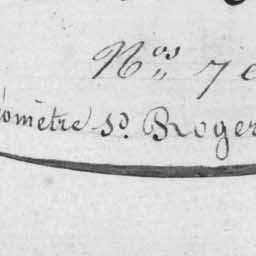 Nos 7
omètre So. Roger